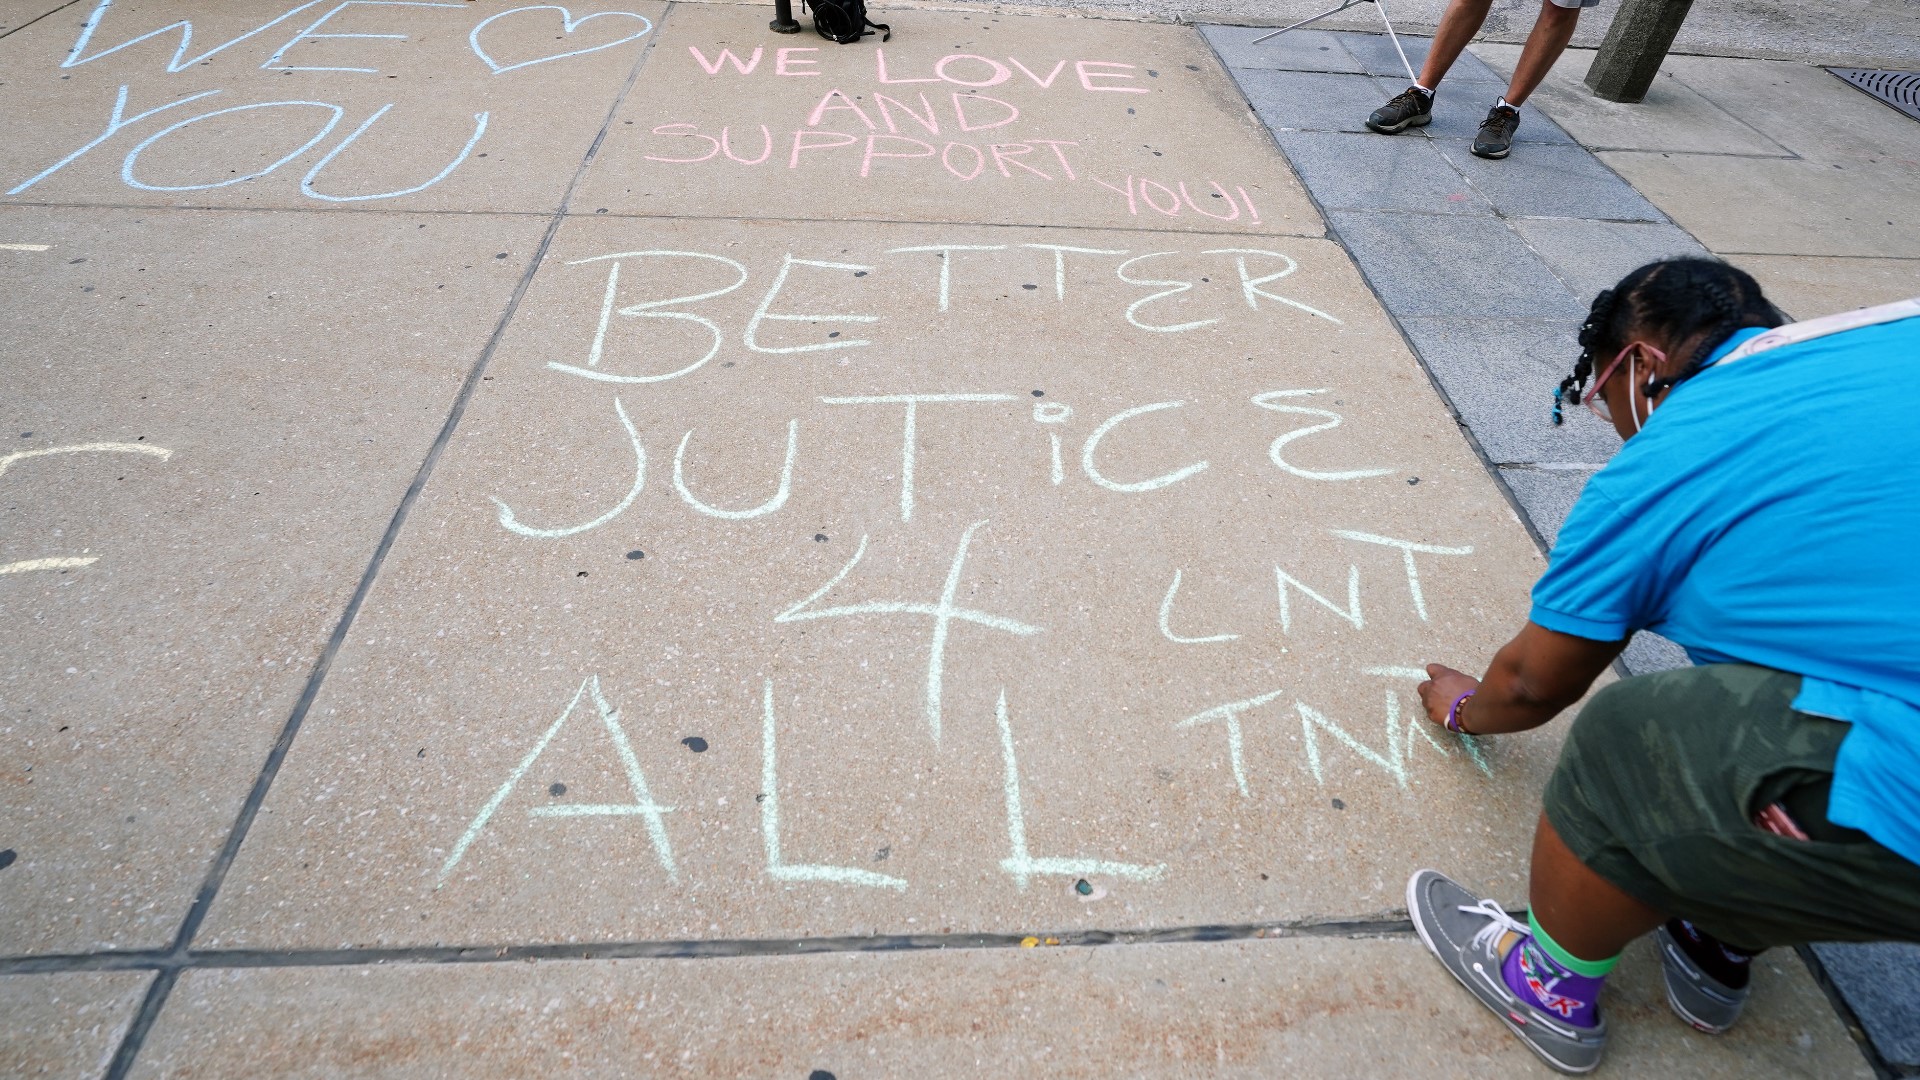 WE ♡
YOU
WE LOVE
AND
SUPPORT
YOU!
BETTER
JUTiCE
4
ALL
LNT
TNT